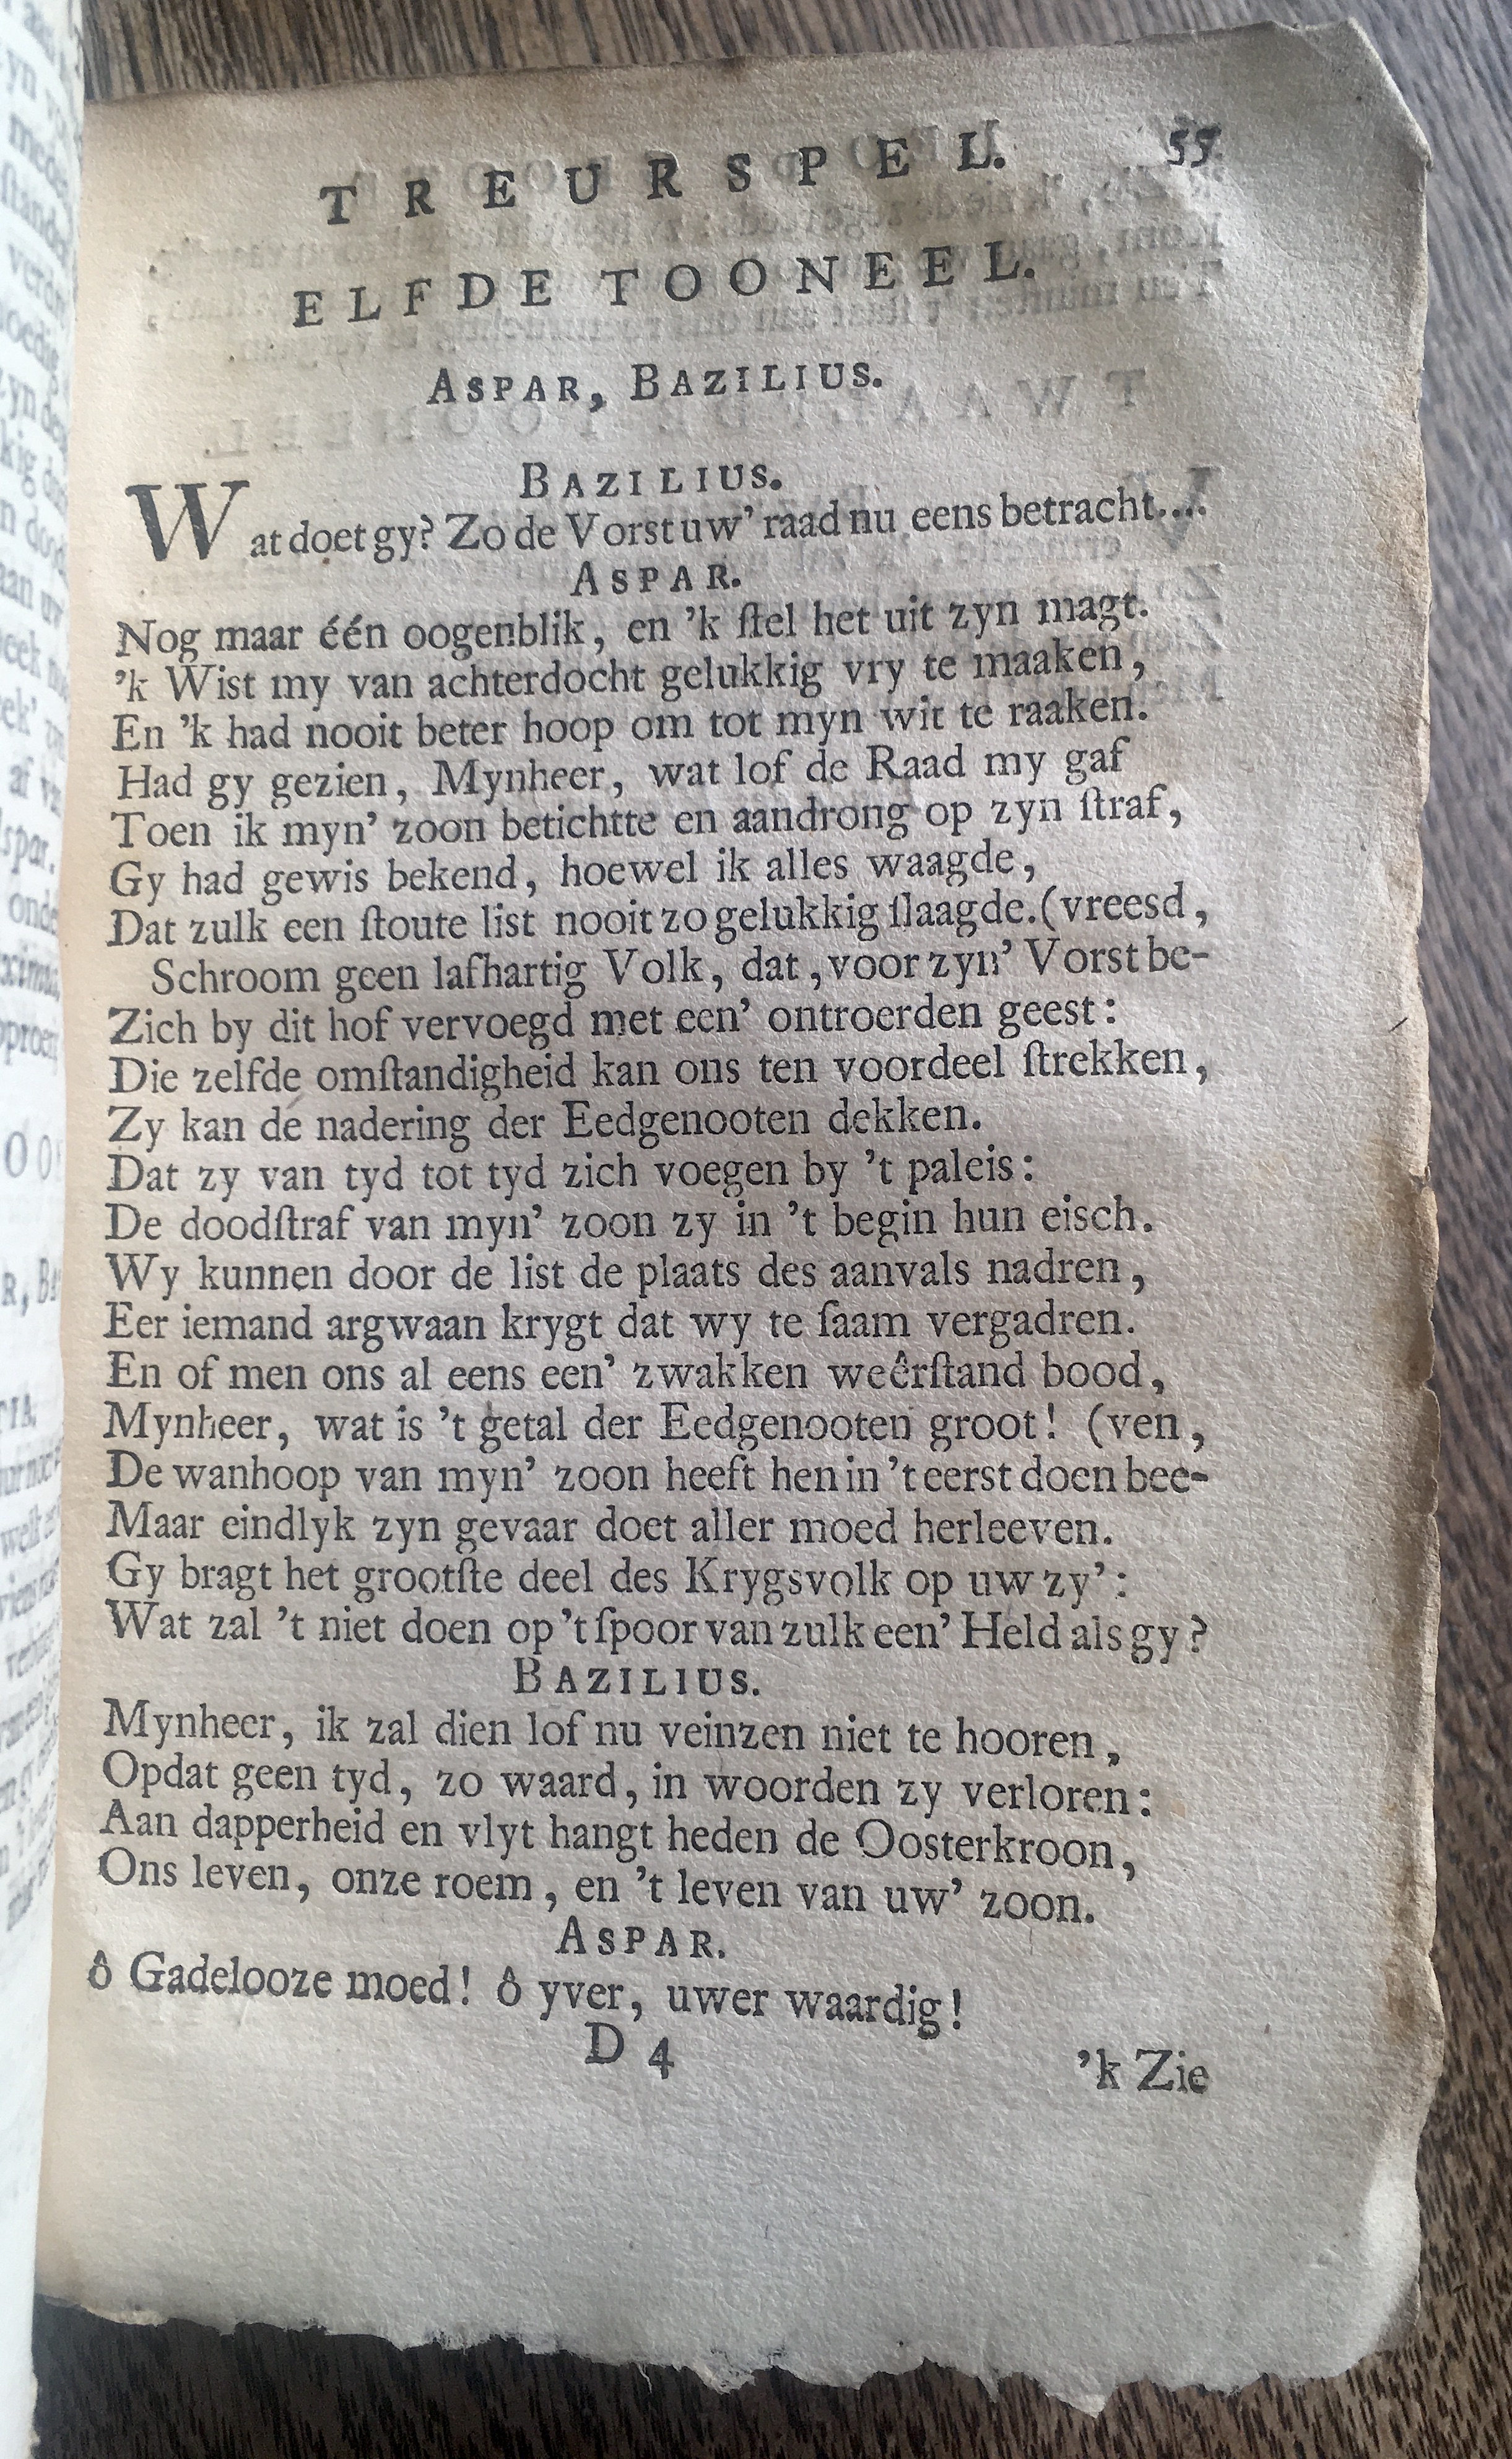 TREURSPEL. 55
ELFDE TOONEEL.
ASPAR, BAZILIUS.
BAZILIUS.
Wat doet gy? Zo de Vorst uw' raad nu eens betracht....
ASPAR.
Nog maar één oogenblik, en 'k ſtel het uit zyn magt.
'k Wist my van achterdocht gelukkig vry te maaken,
En 'k had nooit beter hoop om tot myn wit te raaken.
Had gy gezien, Mynheer, wat lof de Raad my gaf
Toen ik myn' zoon betichtte en aandrong op zyn ſtraf,
Gy had gewis bekend, hoewel ik alles waagde,
Dat zulk een ſtoute list nooit zo gelukkig ſlaagde.(vreesd,
Schroom geen lafhartig Volk, dat, voor zyn' Vorst be-
Zich by dit hof vervoegd met een' ontroerden geest:
Die zelfde omſtandigheid kan ons ten voordeel ſtrekken,
Zy kan de nadering der Eedgenooten dekken.
Dat zy van tyd tot tyd zich voegen by 't paleis:
De doodſtraf van myn' zoon zy in 't begin hun eisch.
Wy kunnen door de list de plaats des aanvals nadren,
Eer iemand argwaan krygt dat wy te ſaam vergadren.
En of men ons al eens een' zwakken weêrſtand bood,
Mynheer, wat is 't getal der Eedgenooten groot! (ven,
De wanhoop van myn' zoon heeft hen in 't eerst doen bee-
Maar eindlyk zyn gevaar doet aller moed herleeven.
Gy bragt het grootſte deel des Krygsvolk op uw zy':
Wat zal 't niet doen op 't ſpoor van zulk een' Held als gy?
BAZILIUS.
Mynheer, ik zal dien lof nu veinzen niet te hooren,
Opdat geen tyd, zo waard, in woorden zy verloren:
Aan dapperheid en vlyt hangt heden de Oosterkroon,
Ons leven, onze roem, en 't leven van uw' zoon.
ASPAR.
ô Gadelooze moed! ô yver, uwer waardig!
D 4
'k Zie